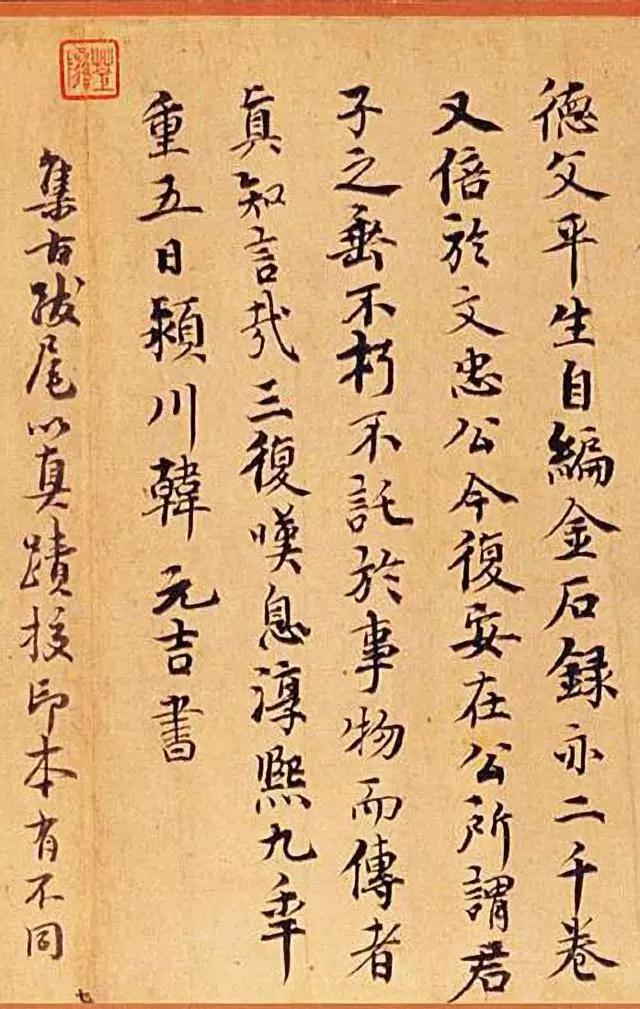 德父平生自編金石録亦二千卷
又倍於文忠公今復安在公所謂君
子之垂不朽不託於事物而傳者
真知言哉三復嘆息淳熙九年
重五日潁川韓元吉書
集古跋尾以真蹟挍印本有不同
七